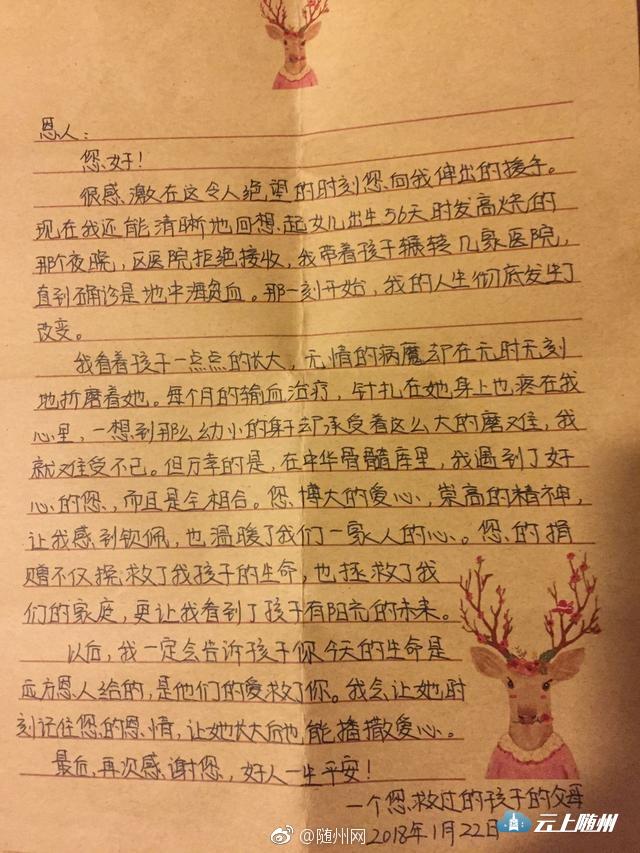 恩人：
您好！
很感激在这令人绝望的时刻您向我伸出的援手。
现在我还能清晰地回想起女儿出生56天时发高烧的
那个夜晚，区医院拒绝接收，我带着孩子辗转几家医院，
直到确诊是地中海贫血。那一刻开始，我的人生彻底发生了
改变。
我看着孩子一点点的长大，无情的病魔却在无时无刻
地折磨着她。每个月的输血治疗，针扎在她身上也疼在我
心里，一想到那么幼小的身子却承受着这么大的磨难，我
就难受不已。但万幸的是，在中华骨髓库里，我遇到了好
心的您，而且是全相合。您博大的爱心，崇高的精神，
让我感到钦佩，也温暖了我们一家人的心。您的捐
赠不仅拯救了我孩子的生命，也拯救了我
们的家庭，更让我看到了孩子有阳光的未来。
以后，我一定会告诉孩子你今天的生命是
应方恩人给的，是他们的爱救了你。我会让她时
刻记住您的恩情，让她长大后也能播撒爱心。
最后，再次感谢您，好人一生平安！
一个您救过的孩子的父母
2018年1月22日
云上随州
@随州网